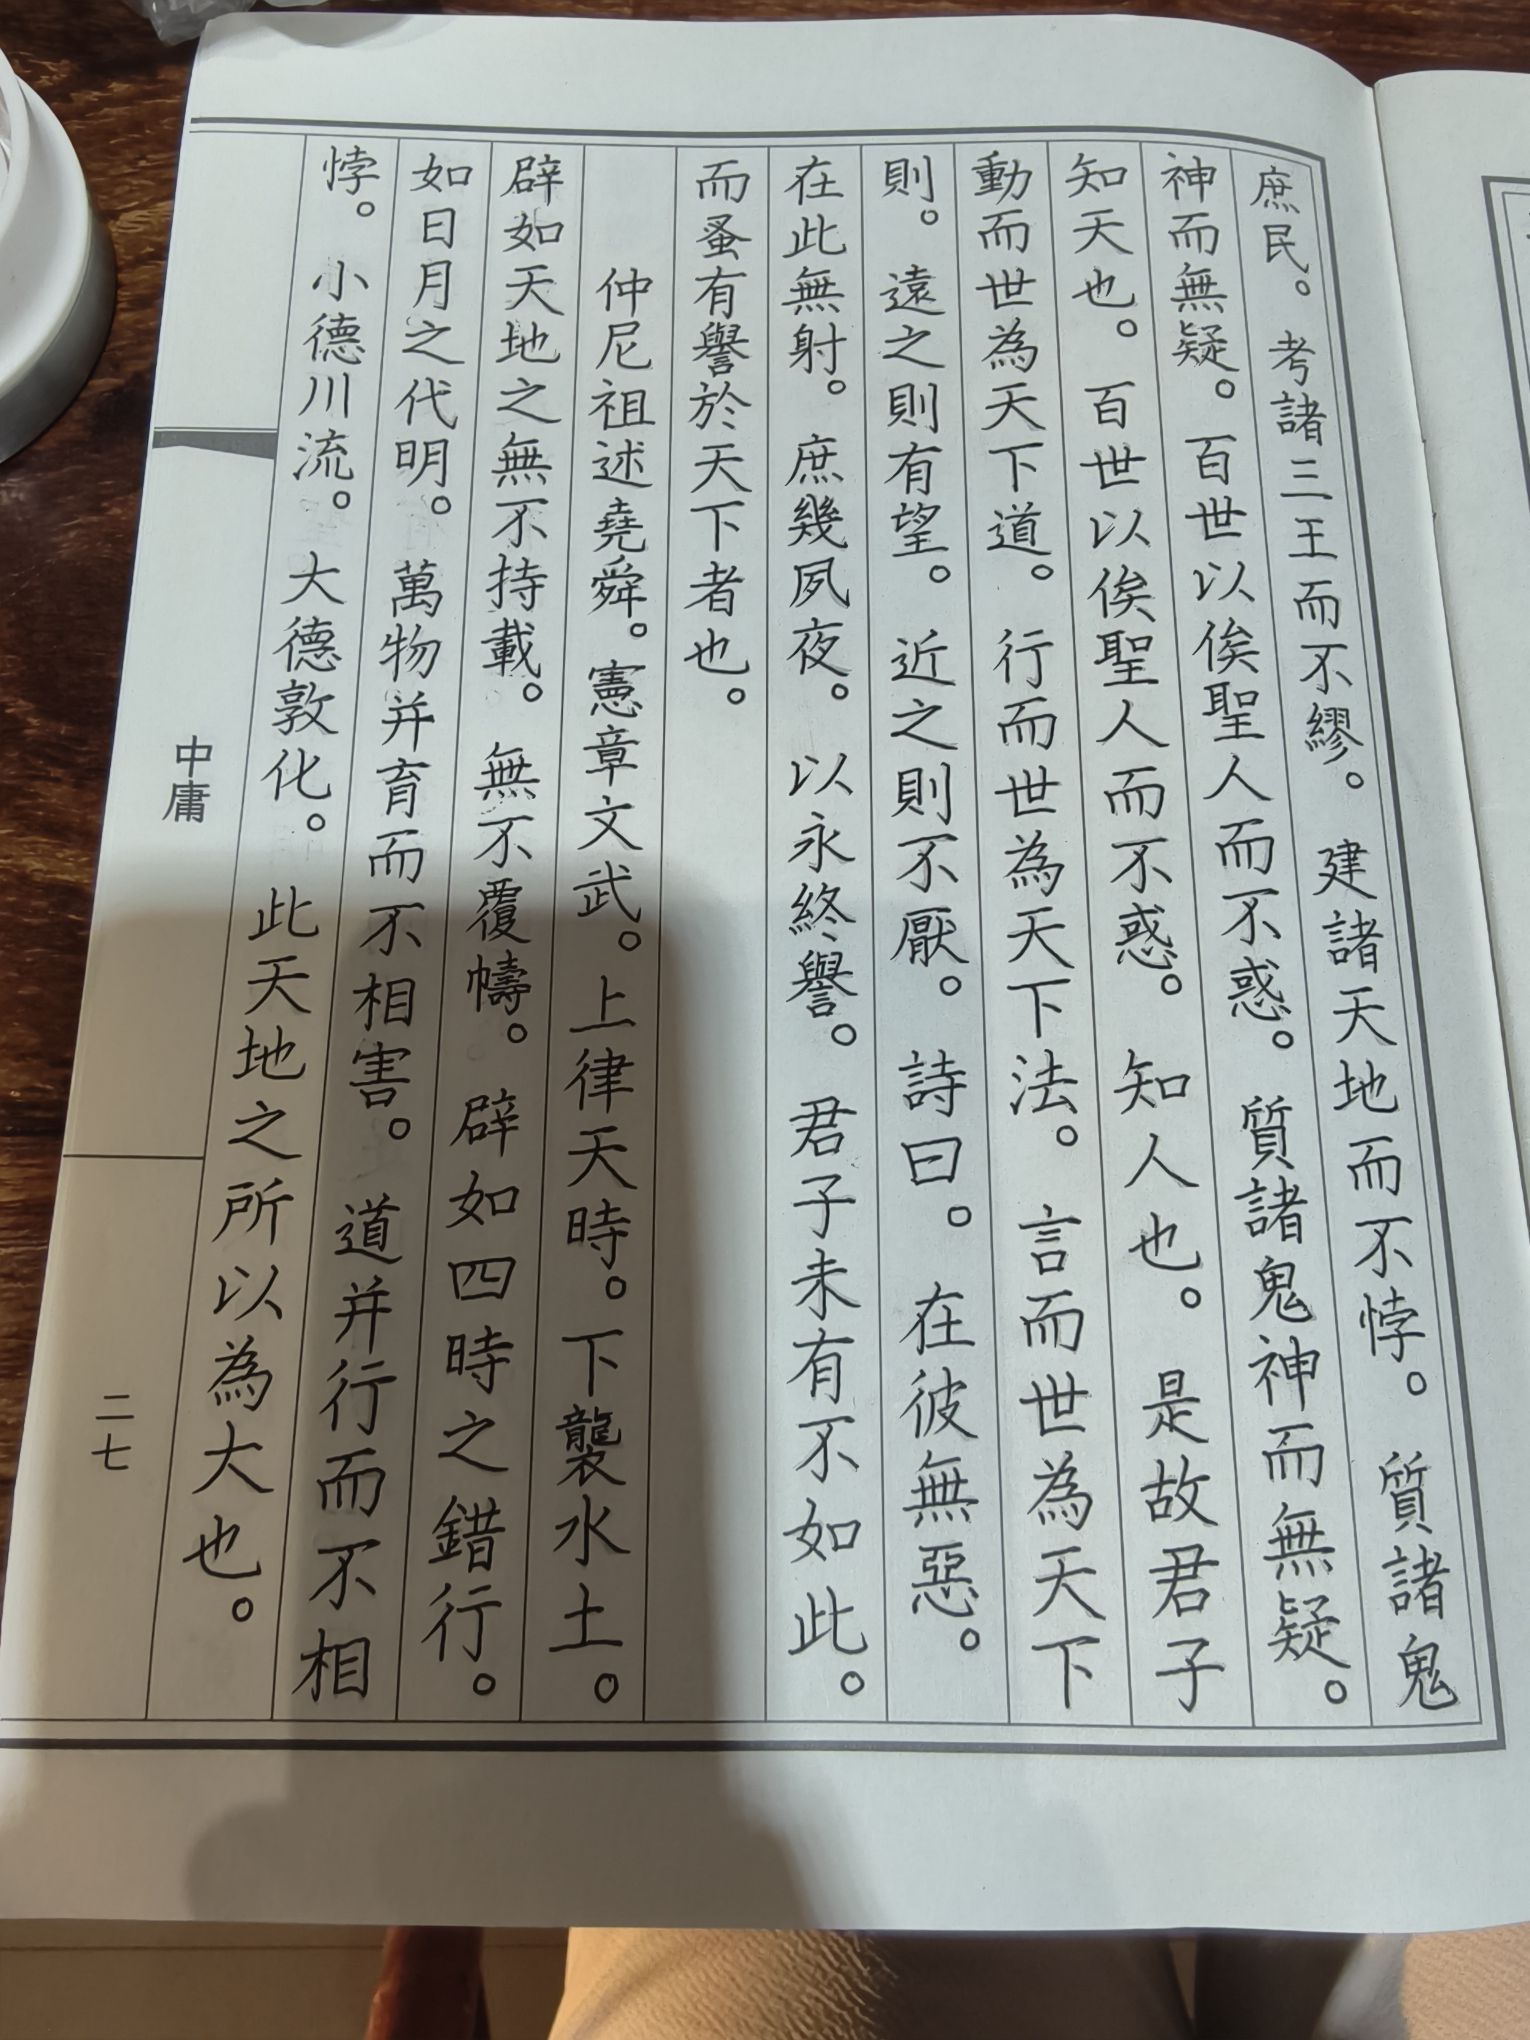 庶民。考諸三王而不繆。建諸天地而不悖。質諸鬼
神而無疑。百世以俟聖人而不惑。質諸鬼神而無疑。
知天也。百世以俟聖人而不惑。知人也。是故君子
動而世為天下道。行而世為天下法。言而世為天下
則。遠之則有望。近之則不厭。詩曰。在彼無惡。
在此無射。庶幾夙夜。以永終譽。君子未有不如此。
而蚤有譽於天下者也。
仲尼祖述堯舜。憲章文武。上律天時。下襲水土。
辟如天地之無不持載。無不覆幬。辟如四時之錯行。
如日月之代明。萬物并育而不相害。道并行而不相
悖。小德川流。大德敦化。此天地之所以為大也。
中庸
二七